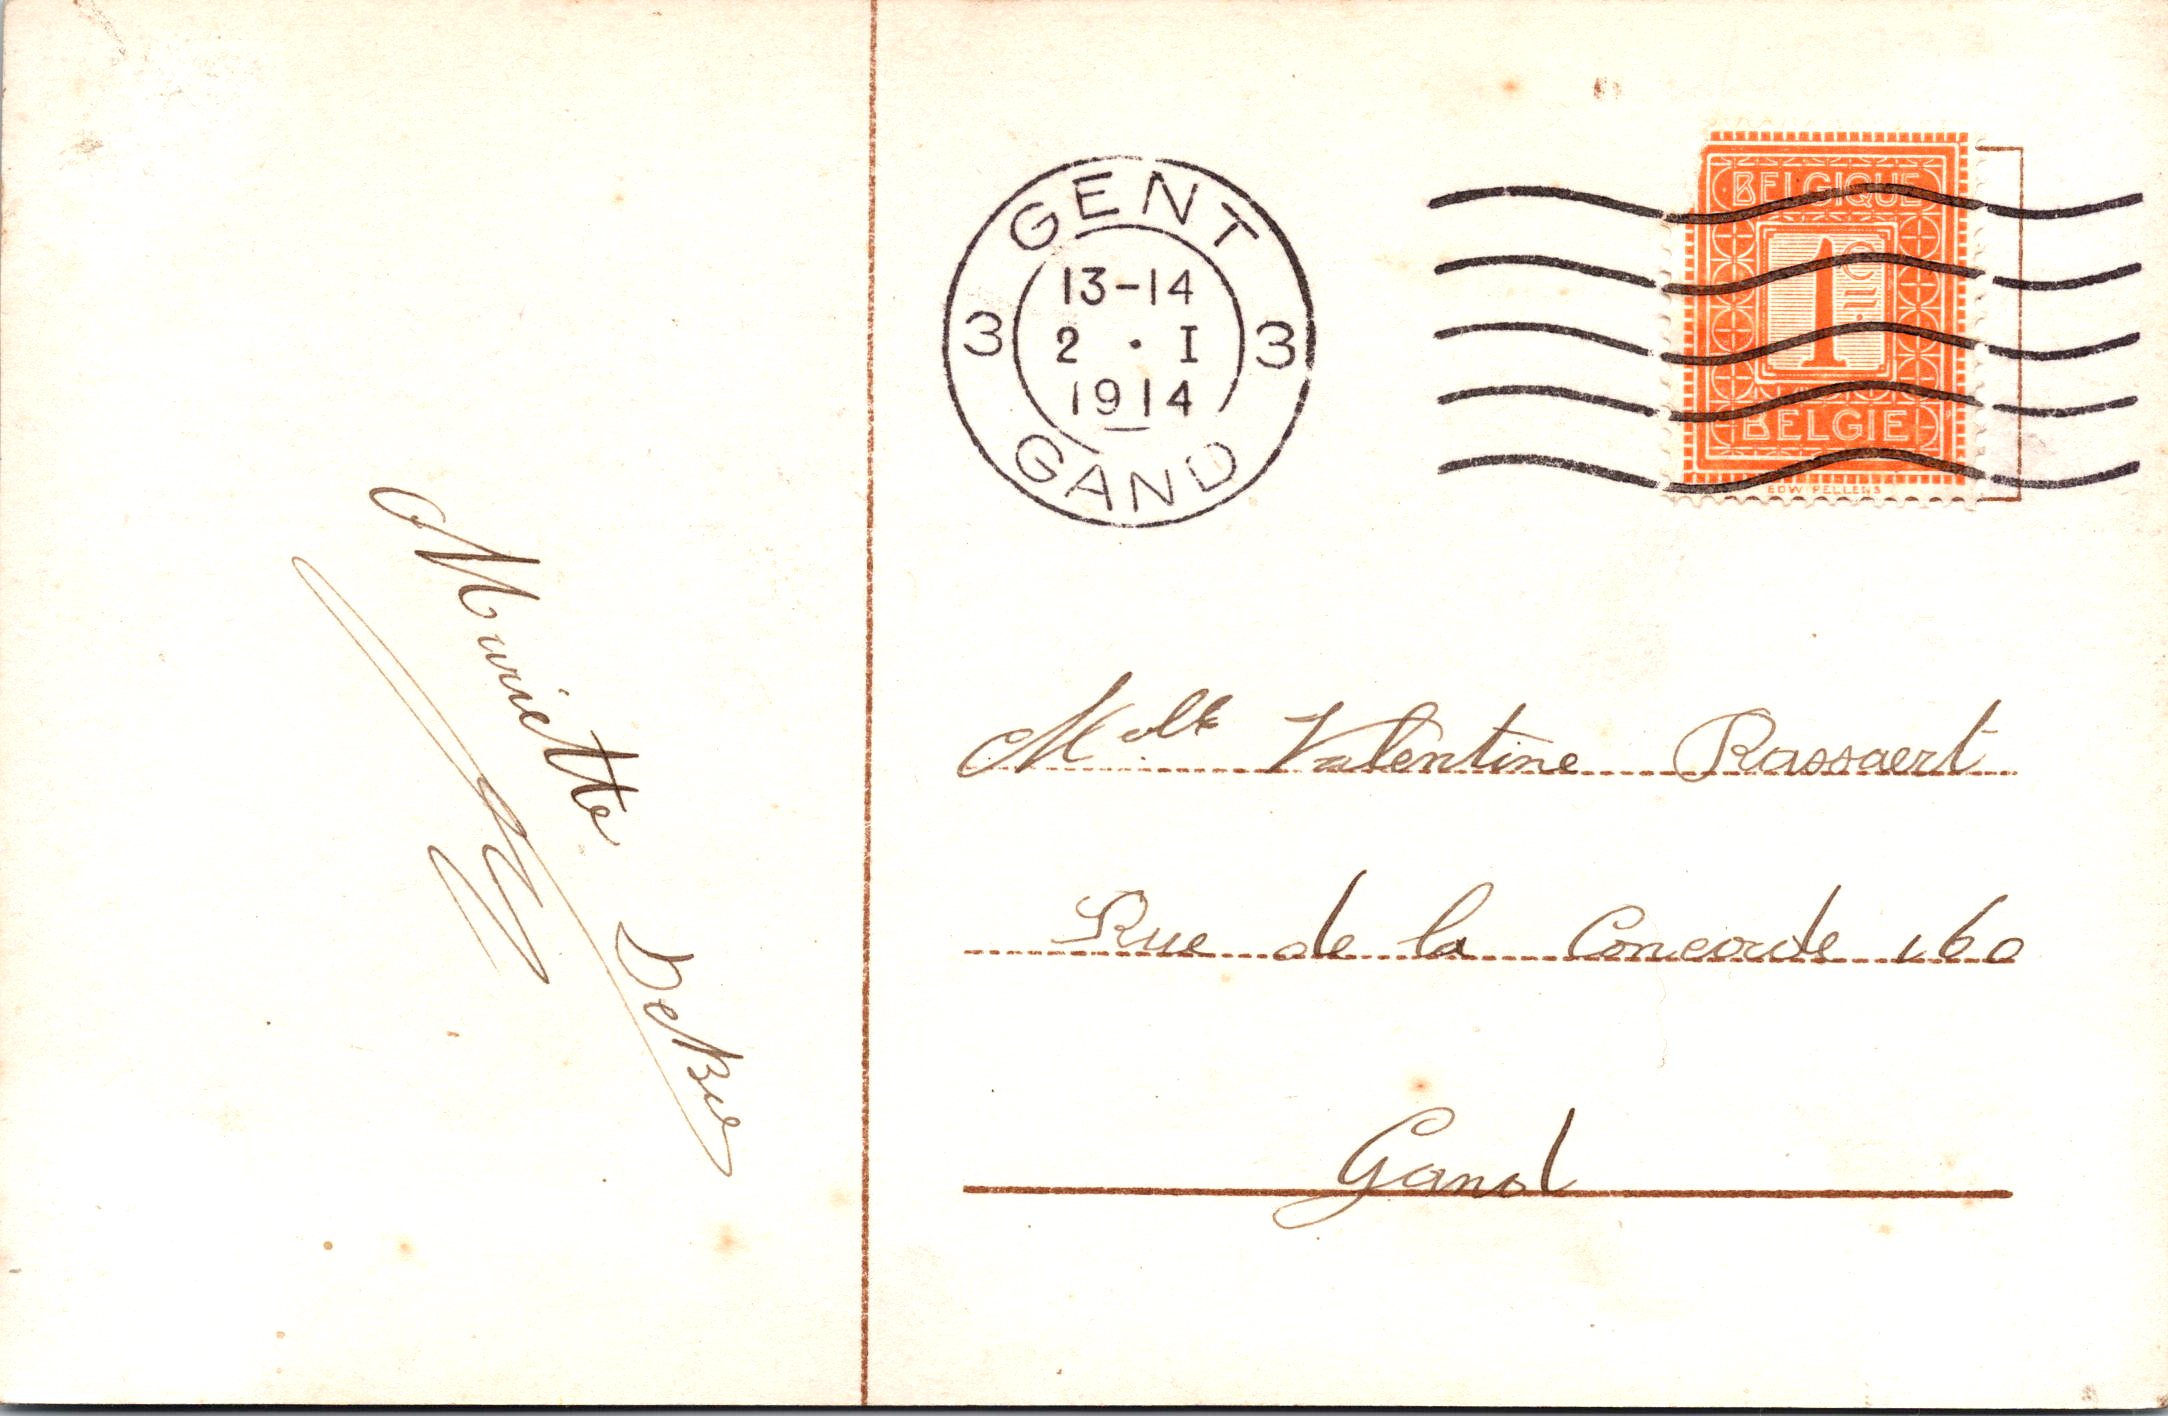 Mariette DeBie
GENT
13-14
3 2 · I 3
1914
GAND
BELGIQUE
1c
BELGIË
EDW PELLENS
Melle Valentine Rassaert
Rue de la Concorde 160
Gand